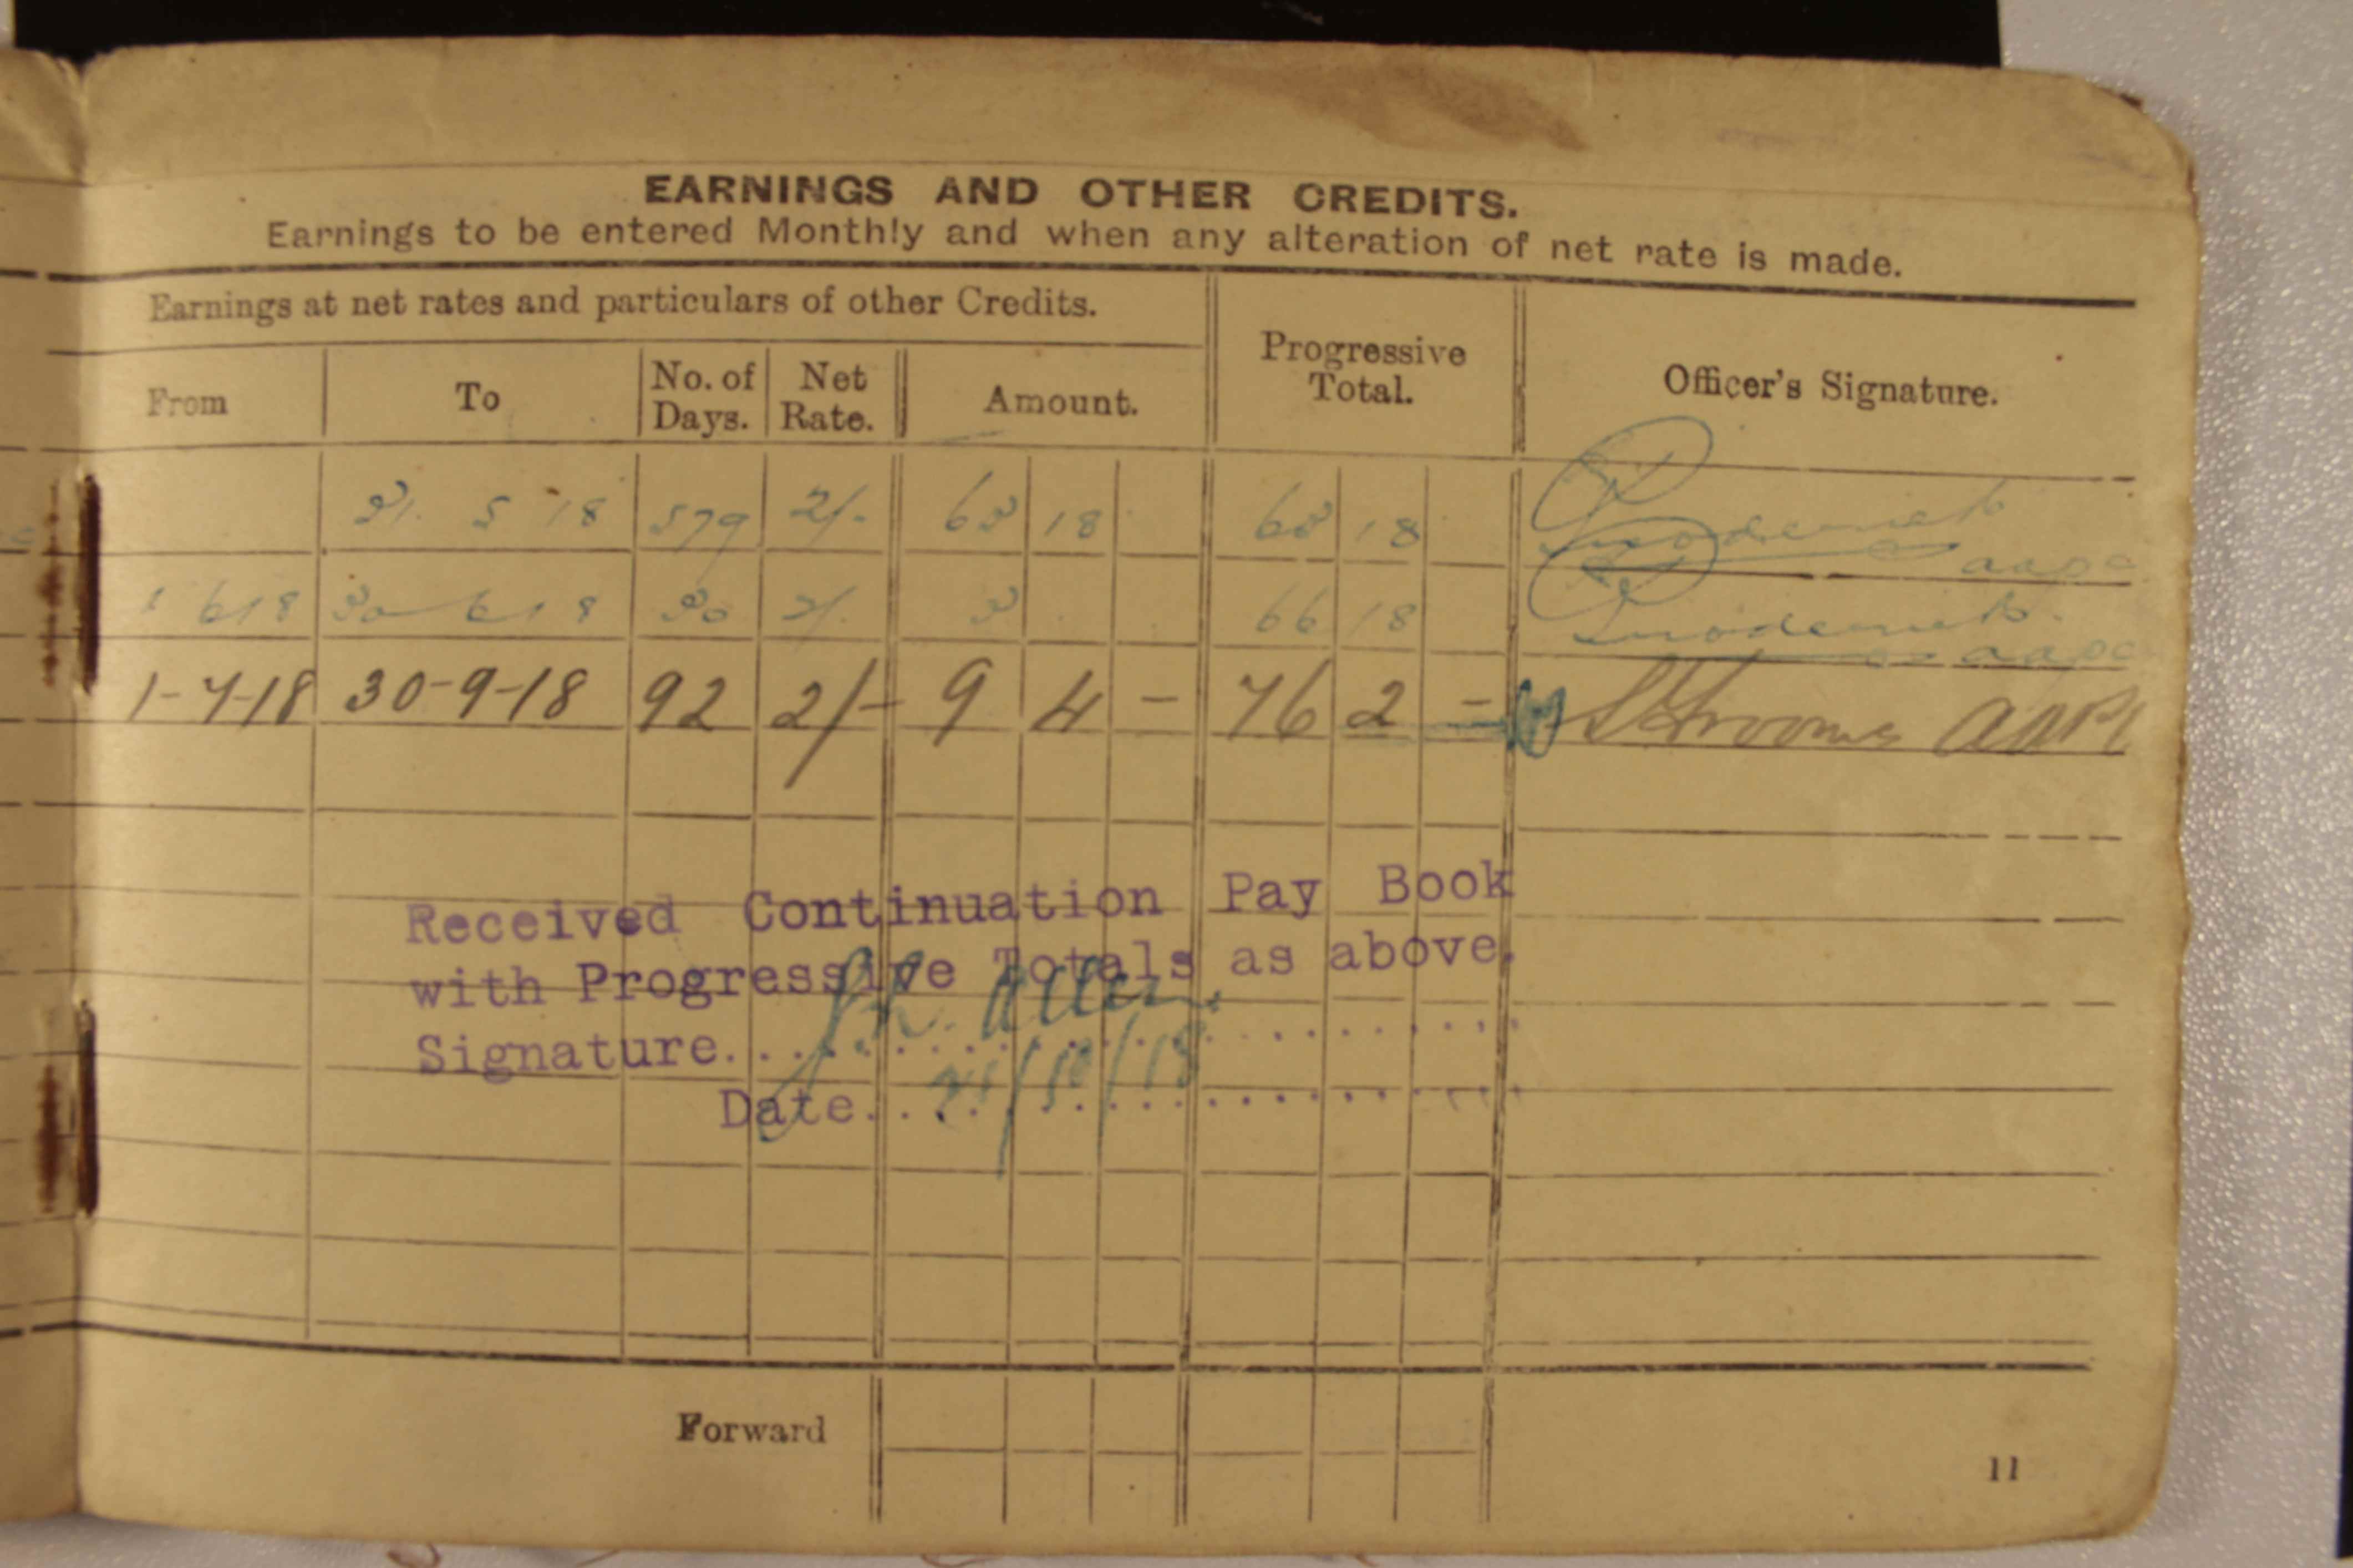 EARNINGS AND OTHER CREDITS.
Earnings to be entered Monthly and when any alteration of net rate is made.
Earnings at net rates and particulars of other Credits.
From To No. of Days. Net Rate. Amount. Progressive Total. Officer's Signature.
31. 5 18 579 2/- 63 18 63 18
1 6 18 30 6 18 30 2/. 3 66 18
1-7-18 30-9-18 92 2/- 9 4 - 76 2 -
Received Continuation Pay Book
with Progressive Totals as above.
Signature.......... Allen
Date.......... /10/18
Forward
11